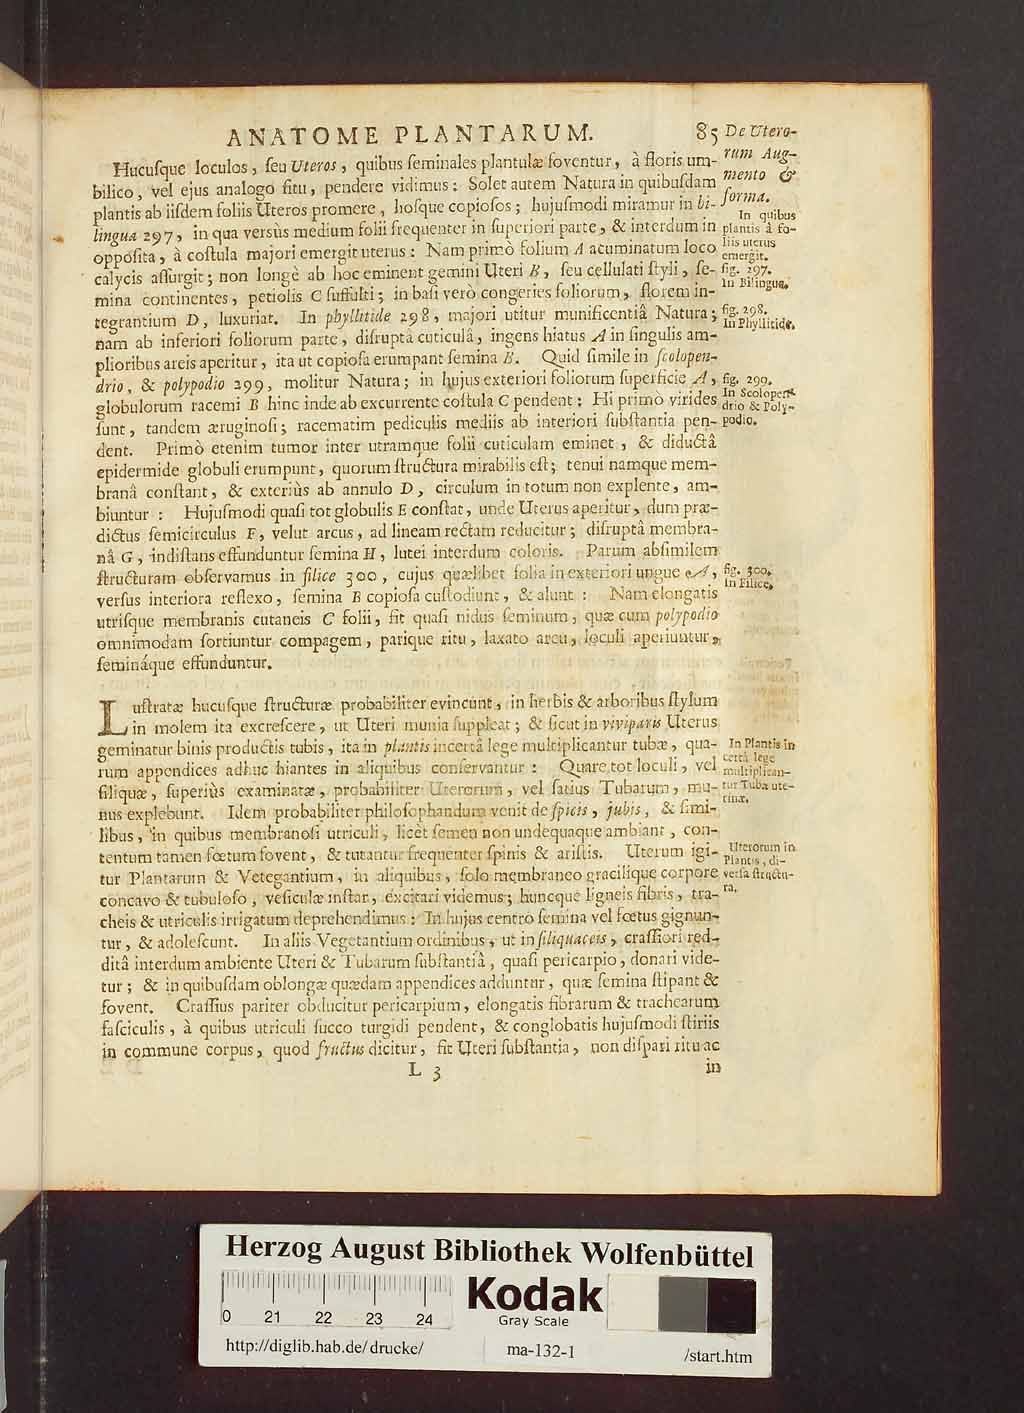 ANATOME PLANTARUM. 85
De Utero-
rum Aug-
mento &
forma.
Hucuſque loculos, ſeu Uteros, quibus ſeminales plantulæ foventur, à floris um-
bilico, vel ejus analogo ſitu, pendere vidimus: Solet autem Natura in quibuſdam
plantis ab iiſdem foliis Uteros promere, hoſque copioſos; hujuſmodi miramur in bi-
lingua 297, in qua verſùs medium folii frequenter in ſuperiori parte, & interdum in
oppoſita, à coſtula majori emergit uterus: Nam primò folium A acuminatum loco
calycis aſſurgit; non longè ab hoc eminent gemini Uteri B, ſeu cellulati ſtyli, ſe-
mina continentes, petiolis C ſuffulti; in baſi verò congeries foliorum, florem in-
tegrantium D, luxuriat. In phyllitide 298, majori utitur munificentiâ Natura;
nam ab inferiori foliorum parte, diſruptâ cuticulâ, ingens hiatus A in ſingulis am-
plioribus areis aperitur, ita ut copioſa erumpant ſemina B. Quid ſimile in ſcolopen-
drio, & polypodio 299, molitur Natura; in hujus exteriori foliorum ſuperficie A,
globulorum racemi B hinc inde ab excurrente coſtula C pendent: Hi primò virides
ſunt, tandem æruginoſi; racematim pediculis mediis ab interiori ſubſtantia pen-
dent. Primò etenim tumor inter utramque folii cuticulam eminet, & diductâ
epidermide globuli erumpunt, quorum ſtructura mirabilis eſt; tenui namque mem-
branâ conſtant, & exteriùs ab annulo D, circulum in totum non explente, am-
biuntur: Hujuſmodi quaſi tot globulis E conſtat, unde Uterus aperitur, dum præ-
dictus ſemicirculus F, velut arcus, ad lineam rectam reducitur; diſruptâ membra-
nâ G, indiſtans effunduntur ſemina H, lutei interdum coloris. Parum abſimilem
ſtructuram obſervamus in filice 300, cujus quælibet folia in exteriori ungue A,
verſus interiora reflexo, ſemina B copioſa cuſtodiunt, & alunt: Nam elongatis
utriſque membranis cutaneis C folii, fit quaſi nidus ſeminum, quæ cum polypodio
omnimodam ſortiuntur compagem, parique ritu, laxato arcu, loculi aperiuntur,
ſeminàque effunduntur.
In quibus
plantis à fo-
liis uterus
emergit.
fig. 297.
In Bilingua.
fig. 298.
In Phyllitide.
fig. 299.
In Scolopen-
drio & Poly-
podio.
fig. 300.
In Filice.
Luſtratæ hucuſque ſtructuræ probabiliter evincunt, in herbis & arboribus ſtylum
in molem ita excreſcere, ut Uteri munia ſuppleat; & ſicut in viviparis Uterus
geminatur binis productis tubis, ita in plantis incertâ lege multiplicantur tubæ, qua-
rum appendices adhuc hiantes in aliquibus conſervantur: Quare tot loculi, vel
ſiliquæ, ſuperiùs examinatæ, probabiliter Uterorum, vel ſatius Tubarum, mu-
nus explebunt. Idem probabiliter philoſophandum venit de ſpicis, jubis, & ſimi-
libus, in quibus membranoſi utriculi, licèt ſemen non undequaque ambiant, con-
tentum tamen fœtum fovent, & tutantur frequenter ſpinis & ariſtis. Uterum igi-
tur Plantarum & Vetegantium, in aliquibus, ſolo membraneo gracilique corpore
concavo & tubuloſo, veſiculæ inſtar, excitari videmus; huncque ligneis fibris, tra-
cheis & utriculis irrigatum deprehendimus: In hujus centro ſemina vel fœtus gignun-
tur, & adoleſcunt. In aliis Vegetantium ordinibus, ut in ſiliquaceis, craſſiori red-
ditâ interdum ambiente Uteri & Tubarum ſubſtantiâ, quaſi pericarpio, donari vide-
tur; & in quibuſdam oblongæ quædam appendices adduntur, quæ ſemina ſtipant &
fovent. Craſſius pariter obducitur pericarpium, elongatis fibrarum & trachearum
faſciculis, à quibus utriculi ſucco turgidi pendent, & conglobatis hujuſmodi ſtiriis
in commune corpus, quod fructus dicitur, fit Uteri ſubſtantia, non diſpari ritu ac
In Plantis in
certâ lege
multiplican-
tur Tubæ ute-
rinæ.
Uterorum in
Plantis, di-
verſa ſtructu-
ra.
L 3 in
Herzog August Bibliothek Wolfenbüttel
0 21 22 23 24
Kodak
Gray Scale
http://diglib.hab.de/drucke/ ma-132-1 /start.htm